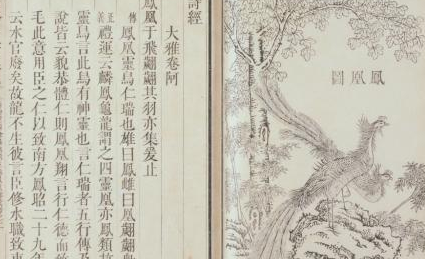 鳳凰圖
詩經
大雅卷阿
鳳凰于飛翽翽其羽亦集爰止
傳鳳凰靈鳥仁瑞也雄曰鳳雌曰凰翽翽
正義禮運云麟鳳龜龍謂之四靈凰亦鳳類故
靈鳥言此鳥有神靈也言仁瑞者五行傳及
說皆云貌恭體仁則鳳凰翔言行仁德而致
毛此意用臣之仁以致南方鳳昭二十九年
云水官廢矣故龍不生彼言臣修水職致東